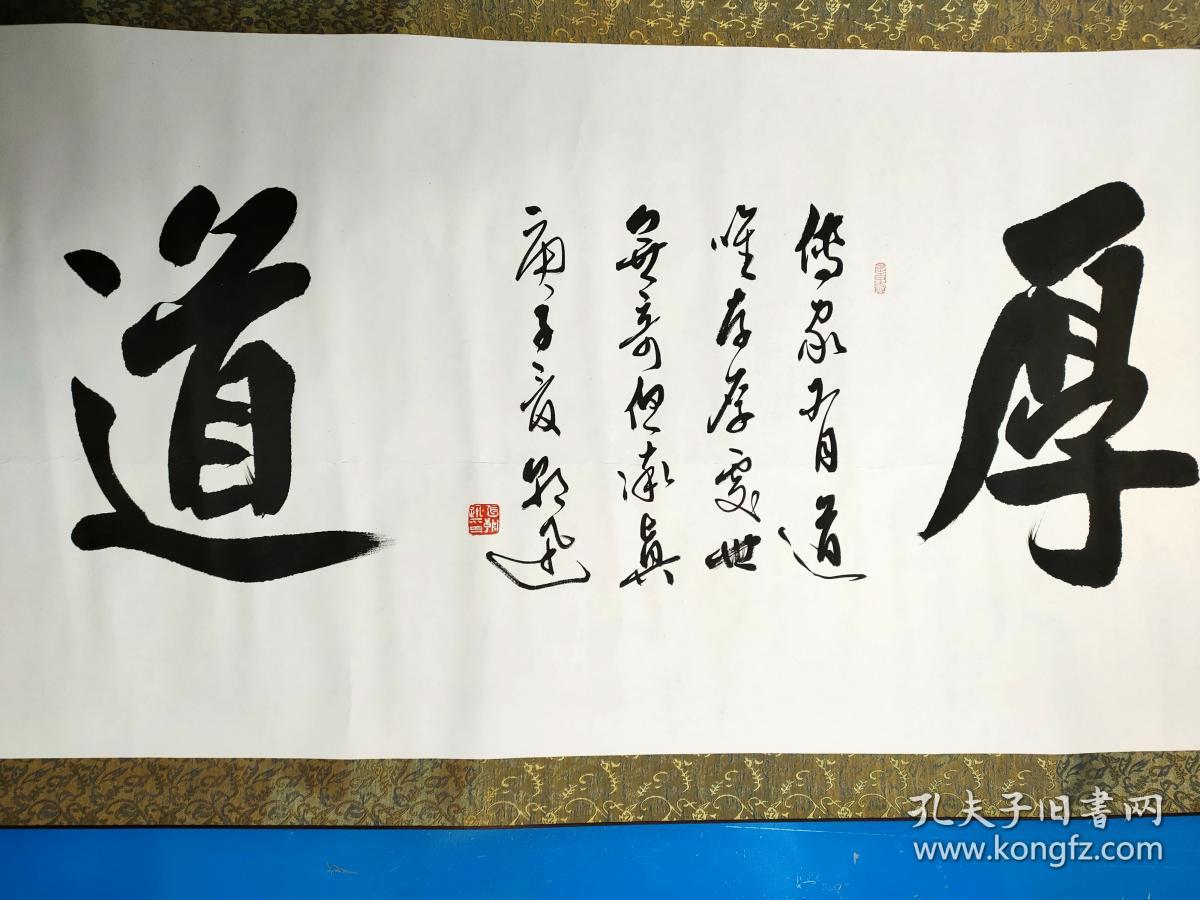 厚
傳家有道
唯存厚處世
無奇但率真
庚子夏
道
孔夫子旧書网
www.kongfz.com